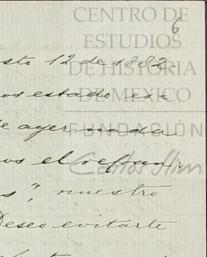 CENTRO DE
ESTUDIOS
DE HISTORIA
DE MEXICO
FUNDACIÓN
Carlos Slim
6
sto 12 de 1882.
os estado en
e ayer
os el refran
s", nuestro
Deseo evitarte